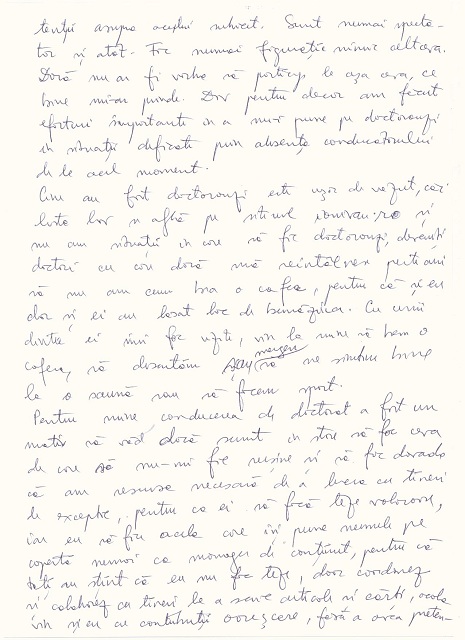 tenții asupra acestui subiect. Sunt numai specta-
tor și atât. Fac numai figurație nimic altceva.
Dacă nu ar fi vorba să particip la așa ceva, ce
bine mi-ar prinde. Dar pentru decor am făcut
eforturi importante în a nu-i pune pe doctoranzi
în situații dificile prin absența conducătorului
de la acel moment.
Cine au fost doctoranzi este ușor de văzut, căci
lista lor se află pe siteul ioanivan.ro și
nu am situații în care să fac doctoranzi, deveniți
doctori cu care dacă mă reîntâlnesc peste ani
să nu am cum bea o cafea, pentru că și eu
dar și ei au lăsat loc de bunăvoință. Cu unii
dintre ei îmi fac vizite, vin la mine să bem o
cafea, să discutăm sau mergem să ne simțim bine
la o saună sau să facem sport.
Pentru mine conducerea de doctorat a fost un
motiv să văd dacă sunt în stare să fac ceva
de care să nu-mi fie rușine și să fac dovada
că am resursa necesară de a lucra cu tineri
de excepție, pentru ca ei să facă teze valoroase,
iar eu să fiu acela care își pune numele pe
coperta numai ca manager de conținut, pentru că
toți au știut că eu nu fac teze, doar coordonez
și colaborez cu tineri la a scrie articole și cărți, acolo
vin și eu cu contribuții oarecare, fără a avea preten-